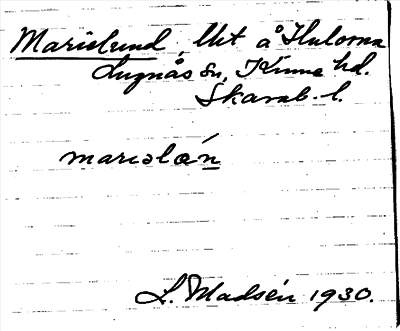 Marielund, lht å Hulorna
Lugnås sn, Kinne hd.
Skarab. l.
marıəlǽn
L. Madsén 1930.